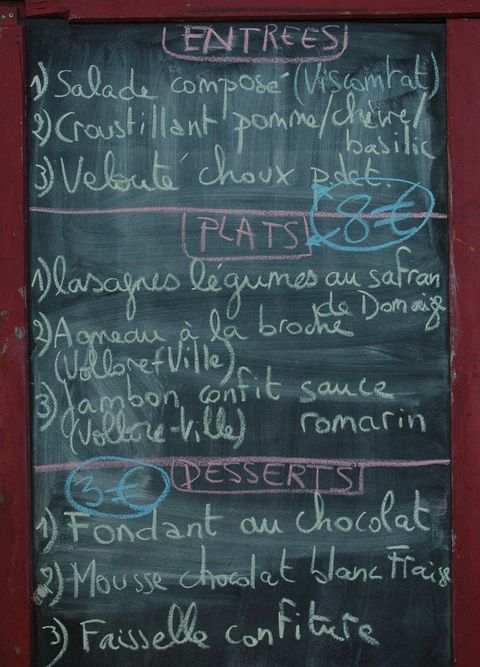 ENTREES
1) Salade composé (Viscomtat)
2) Croustillant pomme/chèvre/
basilic
3) Velouté choux pdet.
8€
PLATS
1) lasagnes légumes au safran
de Domaize
2) Agneau à la broche
(Vollore-Ville)
3) Jambon confit sauce
(Vollore-Ville) romarin
3€
DESSERTS
1) Fondant au chocolat
2) Mousse chocolat blanc Fraise
3) Faisselle confiture